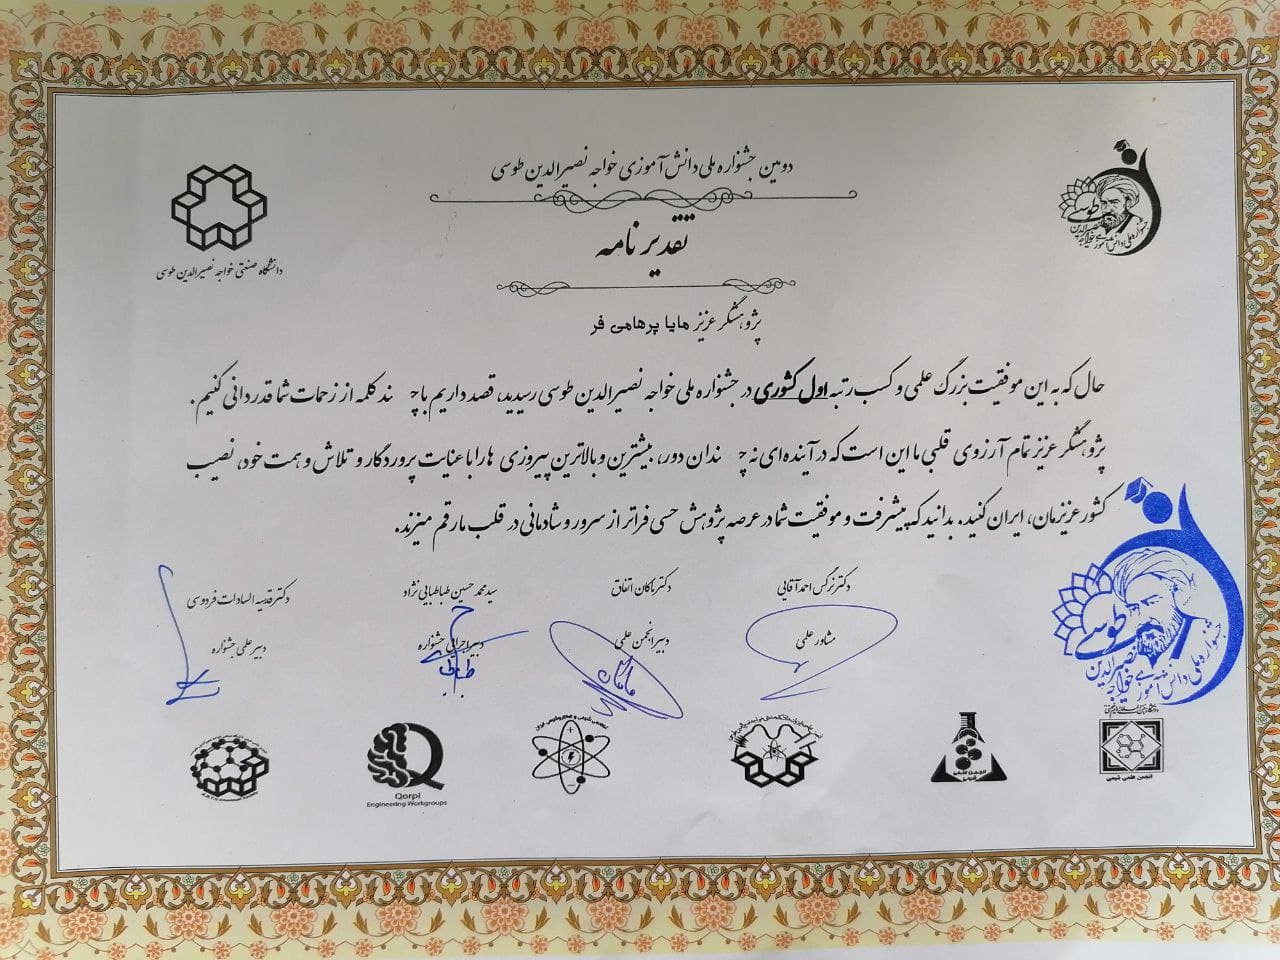 دومین جشنواره ملی دانش آموزی خواجه نصیرالدین طوسی
تقدیر نامه
دانشگاه صنعتی خواجه نصیرالدین طوسی
طوسی
جشنواره ملی دانش آموزی خواجه نصیرالدین
پژوهشگر عزیز مایا پرهامی فر
حال که به این موفقیت بزرگ علمی و کسب رتبه اول کشوری در جشنواره ملی خواجه نصیرالدین طوسی رسیدید، قصد داریم با چند کلمه از زحمات شما قدردانی کنیم.
پژوهشگر عزیز تمام آرزوی قلبی ما این است که در آینده‌ای نه چندان دور، بیشترین و بالاترین پیروزی ها را با عنایت پروردگار و تلاش و همت خود، نصیب
کشور عزیزمان، ایران کنید. بدانید که پیشرفت و موفقیت شما در عرصه پژوهش حسی فراتر از سرور و شادمانی در قلب ما رقم میزند.
دکتر نرگس احمدآقایی
دکتر ماکان اتفاق
سید محمد حسین طباطبایی نژاد
دکتر قدسیه السادات فردوسی
مشاور علمی
دبیر انجمن علمی
دبیر اجرایی جشنواره
دبیر علمی جشنواره
طوسی
جشنواره ملی دانش آموزی خواجه نصیرالدین
انجمن علمی شیمی
انجمن علمی شیمی
Qorpi
Engineering Workgroups